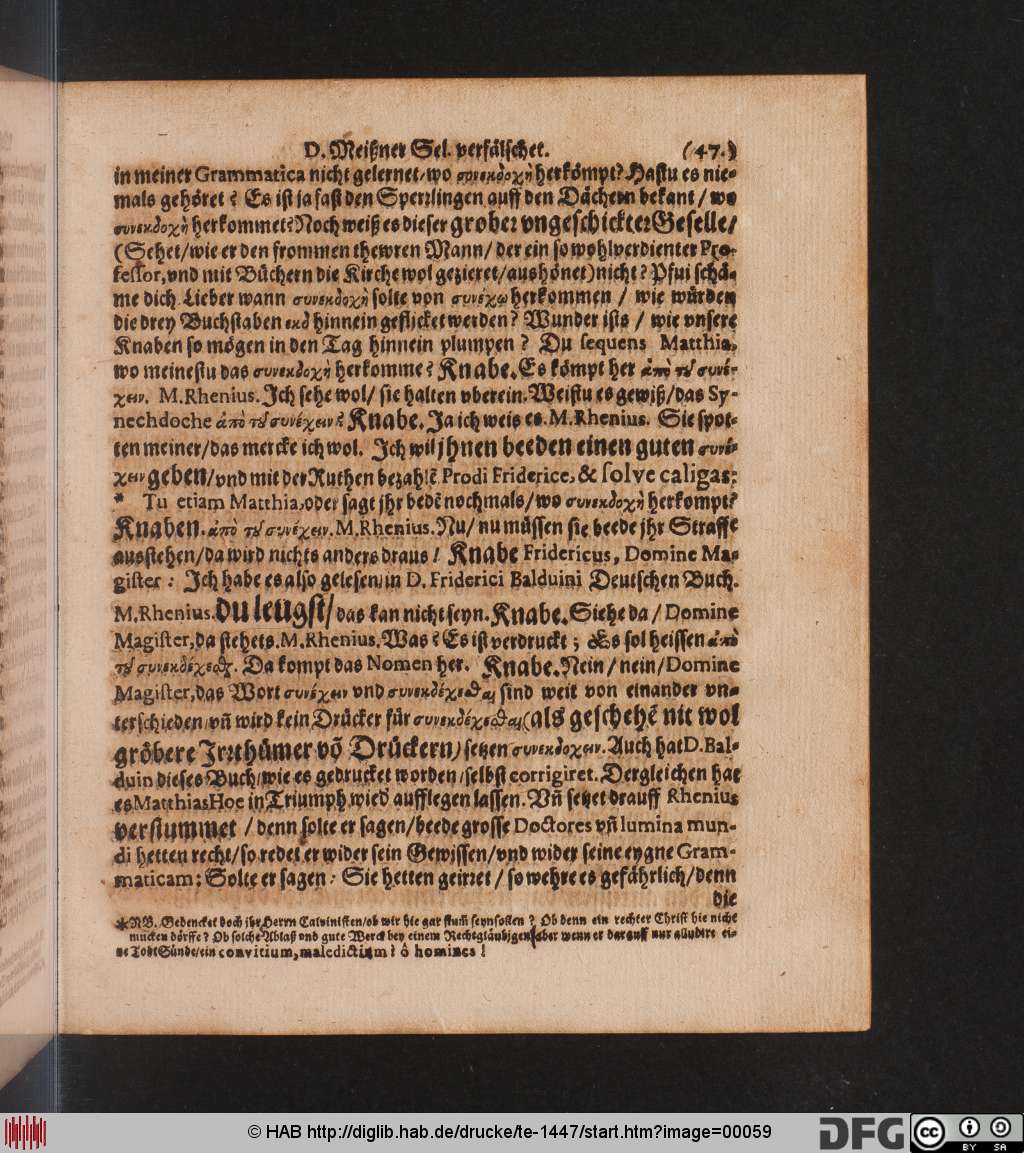 D. Meißner Sel. verfälschet. (47.)
in meiner Grammatica nicht gelernet/wo συνεκδοχὴ herkömpt? Hastu es nie-
mals gehöret? Es ist ja fast den Sperzlingen auff den Dächern bekant/ wo
συνεκδοχὴ herkommet? Noch weiß es dieser grober vngeschickter Geselle/
(Sehet/wie er den frommen thewren Mann/ der ein so wohlverdienter Pro-
fessor, vnd mit Büchern die Kirche wol gezieret/aushönet) nicht? Pfui schä-
me dich. Lieber wann συνεκδοχὴ solte von συνέχω herkommen / wie würden
die drey Buchstaben εκδ hinnein geflicket werden? Wunder ists / wie vnsere
Knaben so mögen in den Tag hinnein plumpen? Du sequens Matthia,
wo meinestu das συνεκδοχὴ herkomme? Knabe. Es kömpt her ἀπὸ τ͂ȣ συνέ-
χειν. M. Rhenius. Ich sehe wol/ sie halten vberein. Weistu es gewiß/das Sy-
nechdoche ἀπὸ τ͂ȣ συνέχειν? Knabe. Ja ich weis es. M. Rhenius. Sie spot-
ten meiner/das mercke ich wol. Ich wil jhnen beeden einen guten συνέ-
χειν geben/vnd mit der Ruthen bezahlē Prodi Friderice, & solve caligas;
* Tu etiam Matthia, oder sagt jhr bedē nochmals/wo συνεκδοχὴ herkompt?
Knaben. ἀπὸ τ͂ȣ συνέχειν. M. Rhenius. Nu/ nu müssen sie beede jhr Straffe
ausstehen/da wird nichts anders draus! Knabe Fridericus, Domine Ma-
gister: Ich habe es also gelesen/in D. Friderici Balduini Deutschen Buch.
M. Rhenius. Du leugst/ das kan nicht seyn. Knabe. Siehe da / Domine
Magister, da stehets. M. Rhenius. Was? Es ist verdruckt; Es sol heissen ἀπὸ
τ͂ȣ συνεκδέχεσθαι. Da kompt das Nomen her. Knabe. Nein/ nein/ Domine
Magister, das Wort συνέχειν vnd συνεκδέχεσθαι sind weit von einander vn-
terschieden/vn̄ wird kein Drücker für συνεκδέχεσθαι (als geschehē nit wol
gröbere Irrthümer vō Drückern) setzen συνεκδοχειν. Auch hat D. Bal-
duin dieses Buch/wie es gedrucket worden/selbst corrigiret. Dergleichen hat
es Matthias Hoe in Triumph wied' aufflegen lassen. Vn̄ setzet drauff Rhenius
verstummet / denn solte er sagen/beede grosse Doctores vn̄ lumina mun-
di hetten recht/so redet er wider sein Gewissen/vnd wider seine eygne Gram-
maticam; Solte er sagen: Sie hetten geirret / so wehre es gefährlich/denn
die
*NB. Gedencket doch ihr Herrn Calvinisten/ob wir hie gar stum̄ seyn sollen? Ob denn ein rechter Christ hie nicht
mucken dörffe? Ob solche Ablaß vnd gute Werck bey einem Rechtgläubigen/aber wenn er darauff nur alludire ei-
ne Todt Sünde/ein convitium, maledictium? ô homines!
© HAB http://diglib.hab.de/drucke/te-1447/start.htm?image=00059
DFG
cc BY SA